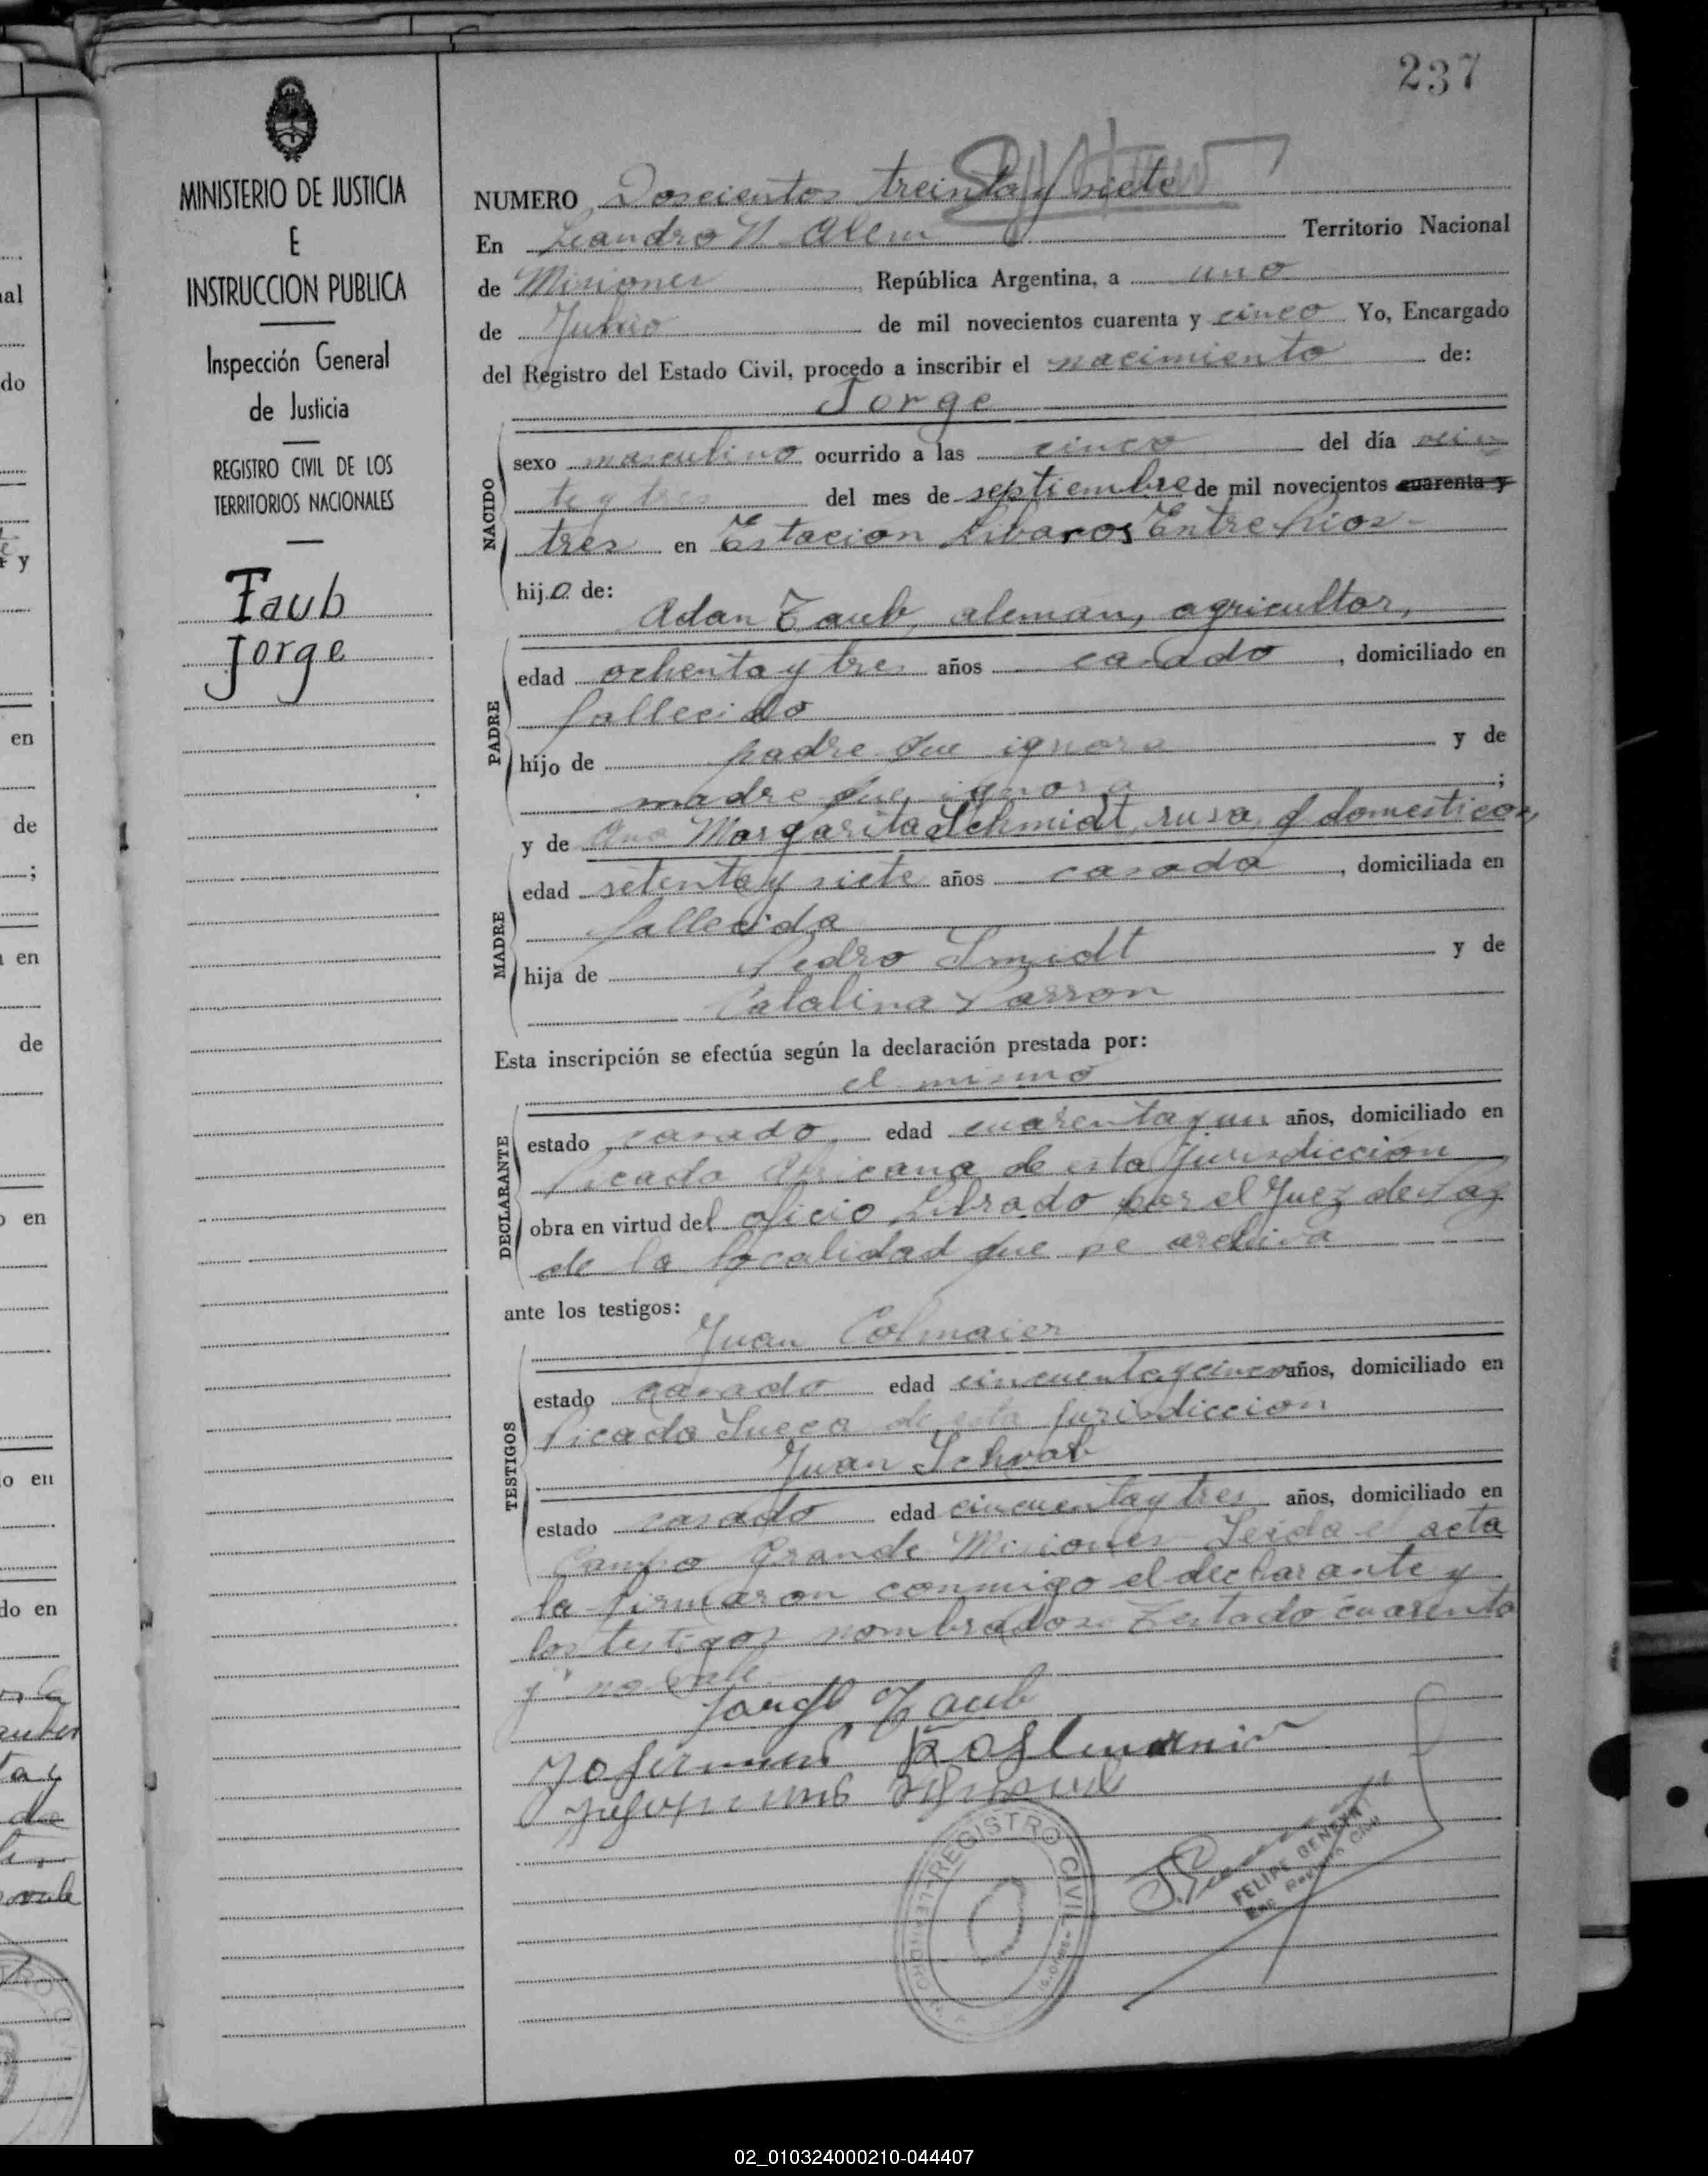 237
MINISTERIO DE JUSTICIA
E
INSTRUCCION PUBLICA
Inspección General
de Justicia
REGISTRO CIVIL DE LOS
TERRITORIOS NACIONALES
Taub
Jorge
NUMERO Doscientos treinta y siete
En Leandro N. Alem Territorio Nacional
de Misiones República Argentina, a uno
de Junio de mil novecientos cuarenta y cinco Yo, Encargado
del Registro del Estado Civil, procedo a inscribir el nacimiento de:
Jorge
NACIDO
sexo masculino ocurrido a las cinco del día vein
te y tres del mes de septiembre de mil novecientos cuarenta y
tres en Estacion Libaros Entre Rios
hijo de:
Adan Taub, aleman, agricultor,
PADRE
edad ochenta y tres años casado, domiciliado en
fallecido
hijo de padre que ignora y de
madre que ignora;
y de Ana Margarita Schmidt, rusa, q domesticos,
MADRE
edad setenta y siete años casada, domiciliada en
fallecida
hija de Pedro Smidt y de
Catalina
Esta inscripción se efectúa según la declaración prestada por:
el mismo
DECLARANTE
estado casado, edad cuarenta y un años, domiciliado en
Picada de esta Jurisdiccion
obra en virtud del oficio librado por el Juez de Paz
de la localidad que se archiva
ante los testigos:
Juan Colmaier
TESTIGOS
estado casado edad cincuenta y cinco años, domiciliado en
Picada Sueca de esta jurisdiccion
Juan Schwab
estado casado edad cincuenta y tres años, domiciliado en
Campo Grande Misiones Leida el acta
la firmaron conmigo el declarante y
los testigos nombrados. Testado "cuarenta
y" no vale
Taub
REGISTRO CIVIL
FELIPE
Enc. Registro Civil
al
do
y
en
de
;
en
de
en
do en
do en
02_010324000210-044407